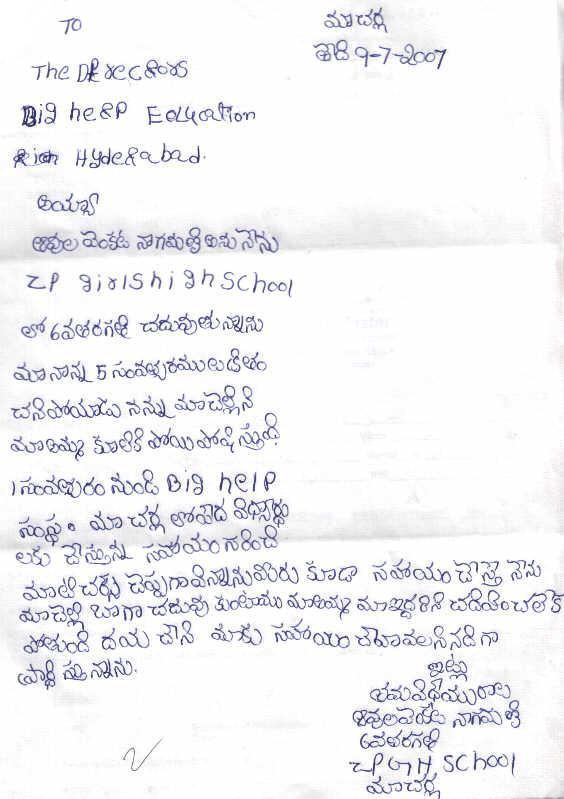 TO
మాచర్ల
తేది 9-7-2007
The Directors
Big help Education
Hyderabad.
అయ్యా
ఆవుల వెంకట నాగమణి అను నేను
ZP girls high school
లో 6వతరగతి చదువుతున్నాను
మా నాన్న 5 సంవత్సరముల క్రితం
చనిపోయాడు నన్ను మా చెల్లిని
మా అమ్మ కూలికి పోయి పోషిస్తుంది
1 సంవత్సరం నుండి Big help
సంస్థ మాచర్ల లో పేద విద్యార్థు
లకు చేస్తున్న సహాయం గురించి
మా టీచర్లు చెప్పగా విన్నాను మీరు కూడా సహాయం చేస్తే నేను
మా చెల్లి బాగా చదువు కుంటాము మా అమ్మ మా ఇద్దరిని చదివించలేక
పోతుంది దయ చేసి మాకు సహాయం చేయవలసినదిగా
ప్రార్థిస్తున్నాను.
ఇట్లు
తమ విధేయురాలు
ఆవుల వెంకట నాగమణి
6వతరగతి
ZPGH SCHOOL
మాచర్ల